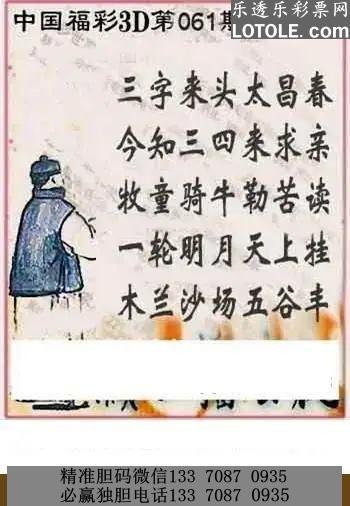 乐透乐彩票网
中国福彩3D第061期
LOTOLE.COM
三字来头太昌春
今知三四来求亲
牧童骑牛勤苦读
一轮明月天上挂
木兰沙场五谷丰
精准胆码微信133 7087 0935
必赢独胆电话133 7087 0935